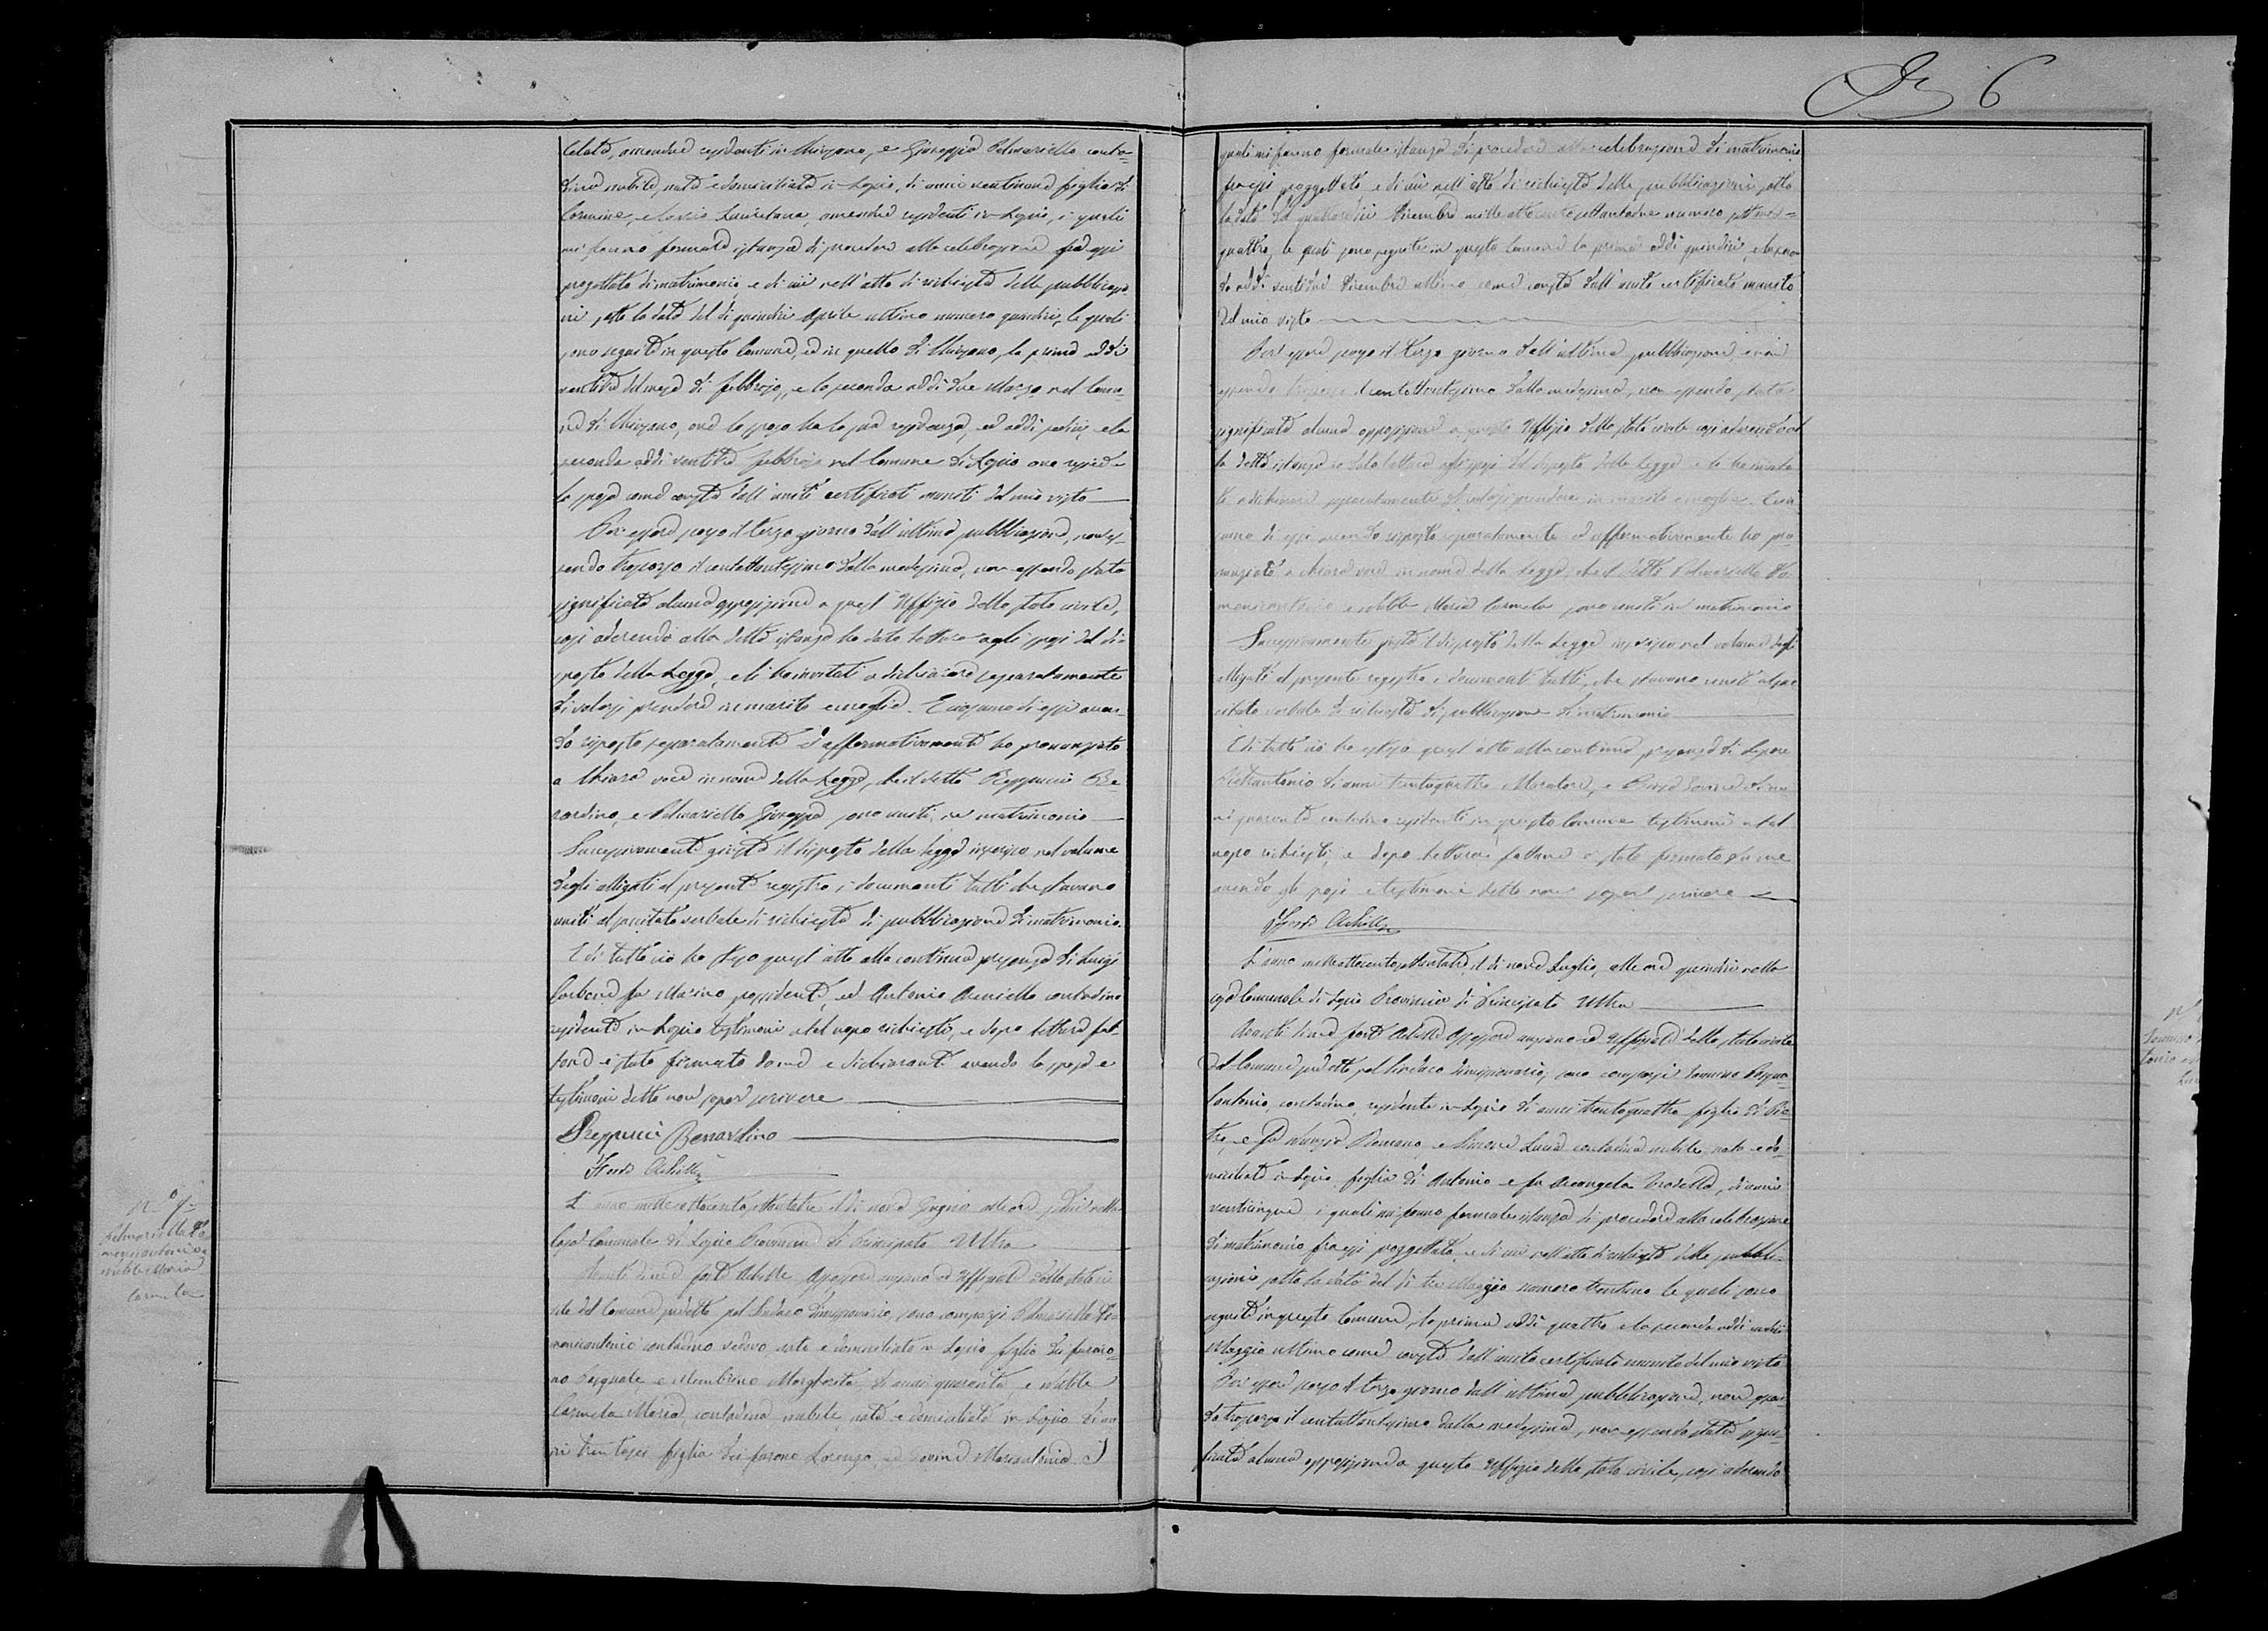 6
Celata, amendue residenti in Chiusano, e Giuseppa Palmariello conta-
dina nubile, nata e domiciliata in Lapio, di anni ventinove figlia di
Carmine, e Lauretana, amendue residenti in Lapio, i quali
mi fanno formale istanza di procedere alla celebrazione fra essi
progettato di matrimonio e di cui nell'atto di richiesta delle pubblicazio
ni sotto la data del di quindici Aprile ultimo numero quindici, le quali
sono seguite in questo Comune, ed in quello di Chiusano, la prima addi
del mese di Febbrajo, e la seconda addi due Marzo nel Comu-
ne di Chiusano, ove lo sposo ha la sua residenza, ed addi sedici, e la
seconda addi ventitre Febbrajo nel Comune di Lapio ove risiede
la sposa come consta dall'uniti certificati muniti del mio visto
Per essere scorso il terzo giorno dall'ultima pubblicazione, non es-
sendo trascorso il centottantesimo dalla medesima, non essendo stata
significata alcuna opposizione a quest'Uffizio dello stato civile,
così aderendo alla detta istanza ho dato lettura agli sposi del di-
sposto della Legge, e li ho invitati a dichiarare separatamente
di volersi prendere in marito e moglie. E ciascuno di essi aven-
do risposto separatamente ed affermativamente ho pronunziato
a chiara voce in nome della Legge, che il detto Preppucci Be-
rardino, e Palmariello Giuseppa sono uniti in matrimonio
Successivamente giusta il disposto della Legge inserisco nel volume
degli alligati al presente registro, i documenti tutti che stavano
uniti al precitato verbale di richiesta di pubblicazione di matrimonio.
E di tutto ciò ho steso quest'atto alla continua presenza di Luigi
Carbone fu Marino possidente, ed Antonio Auriello contadino
residenti in Lapio testimoni a tal uopo richiesti, e dopo lettura fat-
tone è stato firmato da me e dichiaranti avendo la sposa e
testimoni detto non saper scrivere
Preppucci Berardino
Forte Achille
N.o 7
Palmariello Do
menicantonio e
nubile Maria
Carmela
L'anno milleottocentottantatre il di nove Giugno alle ore nella
Casa Comunale di Lapio Provincia di Principato Ultra
Avanti di me Forte Achille Assessore anziano ed Uffiziale dello stato ci-
vile del Comune predetto pel Sindaco dimissionario, sono comparsi Palmariello Do-
menicantonio contadino vedovo nato e domiciliato in Lapio figlio dei furono
Pasquale, e Membrino Margherita, di anni quaranta, e
Carmela Maria, contadina nubile, nata e domiciliata in Lapio di an
ni trentasei figlia dei furono Lorenzo, ed Mariantonia I
quali mi fanno formale istanza di procedere alla celebrazione di matrimonio
fra essi progettato e di cui nell'atto di richiesta delle pubblicazioni sotto
la data del quattordici Dicembre milleottocentottantadue numero settanta-
quattro, le quali sono seguite in questo Comune la prima addi quindici, e la secon
da addi ventidue Dicembre ultimo come consta dall'unito certificato munito
del mio visto
Per essere scorso il terzo giorno dall'ultima pubblicazione e non
essendo trascorso il centottantesimo dalla medesima, non essendo stata
significata alcuna opposizione a questo Uffizio dello stato civile così aderendo al
la detta istanza ho dato lettura essi sposi del disposto della Legge e li ho invita
ti a dichiarare separatamente di volersi prendere in marito e moglie. E cia
scuno di essi avendo risposto separatamente ed affermativamente ho pro
nunziato a chiara voce in nome della Legge, che il detto Palmariello Do
menicantonio e Maria Carmela sono uniti in matrimonio
Successivamente giusta il disposto della Legge inserisco nel volume degli
alligati al presente registro i documenti tutti, che stavano uniti al pre
citato verbale di richiesta di pubblicazione di matrimonio
E di tutto ciò ho esteso quest'atto alla continua presenza di Lepore
Pietrantonio di anni trentaquattro Muratore, e di an
ni quaranta contadino residenti in questo Comune testimoni a tal
uopo richiesti, e dopo lettura fattane è stato firmato da me
avendo gli sposi e testimoni detto non saper scrivere
Forte Achille
L'anno milleottocentottantatre, il di nove Luglio, alle ore quindici nella
casa Comunale di Lapio Provincia di Principato Ultra
Avanti di me Forte Achille Assessore anziano ed Uffiziale dello stato civile
del Comune predetto pel Sindaco dimissionario, sono comparsi
contadino, residente in Lapio di anni trentaquattro figlio di Pie
tro, e fu Nunzia Romano, e Luisa contadina nubile, nata e do-
miciliata in Lapio, figlia di Antonio e fu Arcangela, di anni
venticinque, i quali mi fanno formale istanza di procedere alla celebrazione
di matrimonio fra essi progettato e di cui nell'atto di richiesta delle pubbli-
cazioni sotto la data del di tre Maggio numero trentuno le quali sono
seguite in questo Comune, la prima addi quattro e la seconda addi undici
Maggio ultimo come consta dall'unito certificato munito del mio visto
Per essere scorso il terzo giorno dall'ultima pubblicazione, non essen
do trascorso il centottantesimo dalla medesima, non essendo stata signi-
ficata alcuna opposizione a questo Uffizio dello stato civile, così aderendo